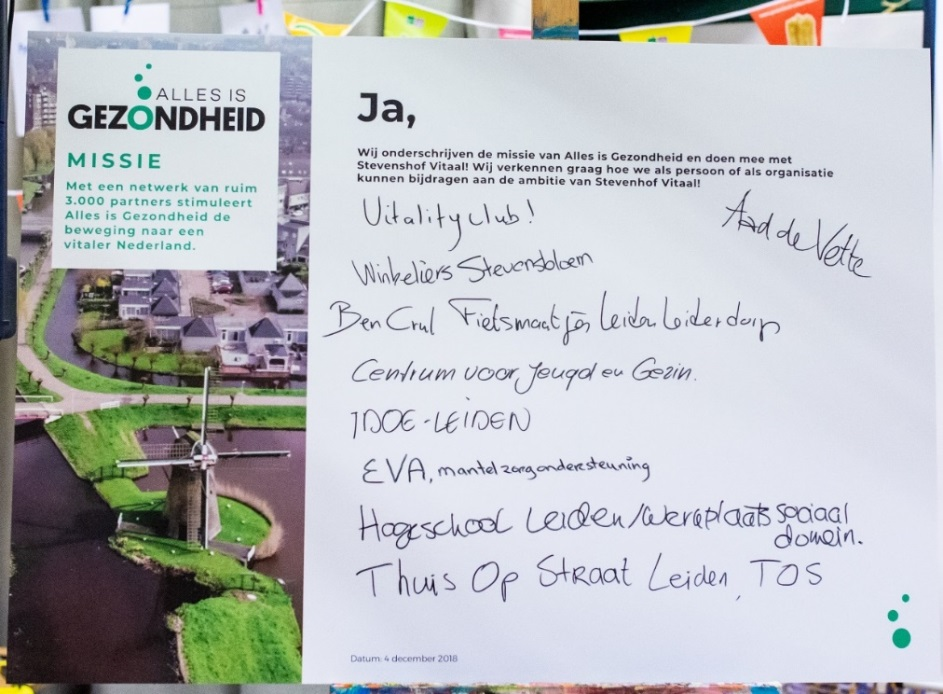 ALLES IS
GEZONDHEID
MISSIE
Met een netwerk van ruim
3.000 partners stimuleert
Alles is Gezondheid de
beweging naar een
vitaler Nederland.
Ja,
Wij onderschrijven de missie van Alles is Gezondheid en doen mee met
Stevenshof Vitaal! Wij verkennen graag hoe we als persoon of als organisatie
kunnen bijdragen aan de ambitie van Stevenhof Vitaal!
Vitalityclub!
Aad de Vette
Winkeliers Stevensbloem
Ben Crul Fietsmaatjes Leiden Leiderdorp
Centrum voor Jeugd en Gezin.
IDOE-LEIDEN
EVA, mantelzorgondersteuning
Hogeschool Leiden/Werkplaats sociaal
domein.
Thuis Op Straat Leiden, TOS
Datum: 4 december 2018